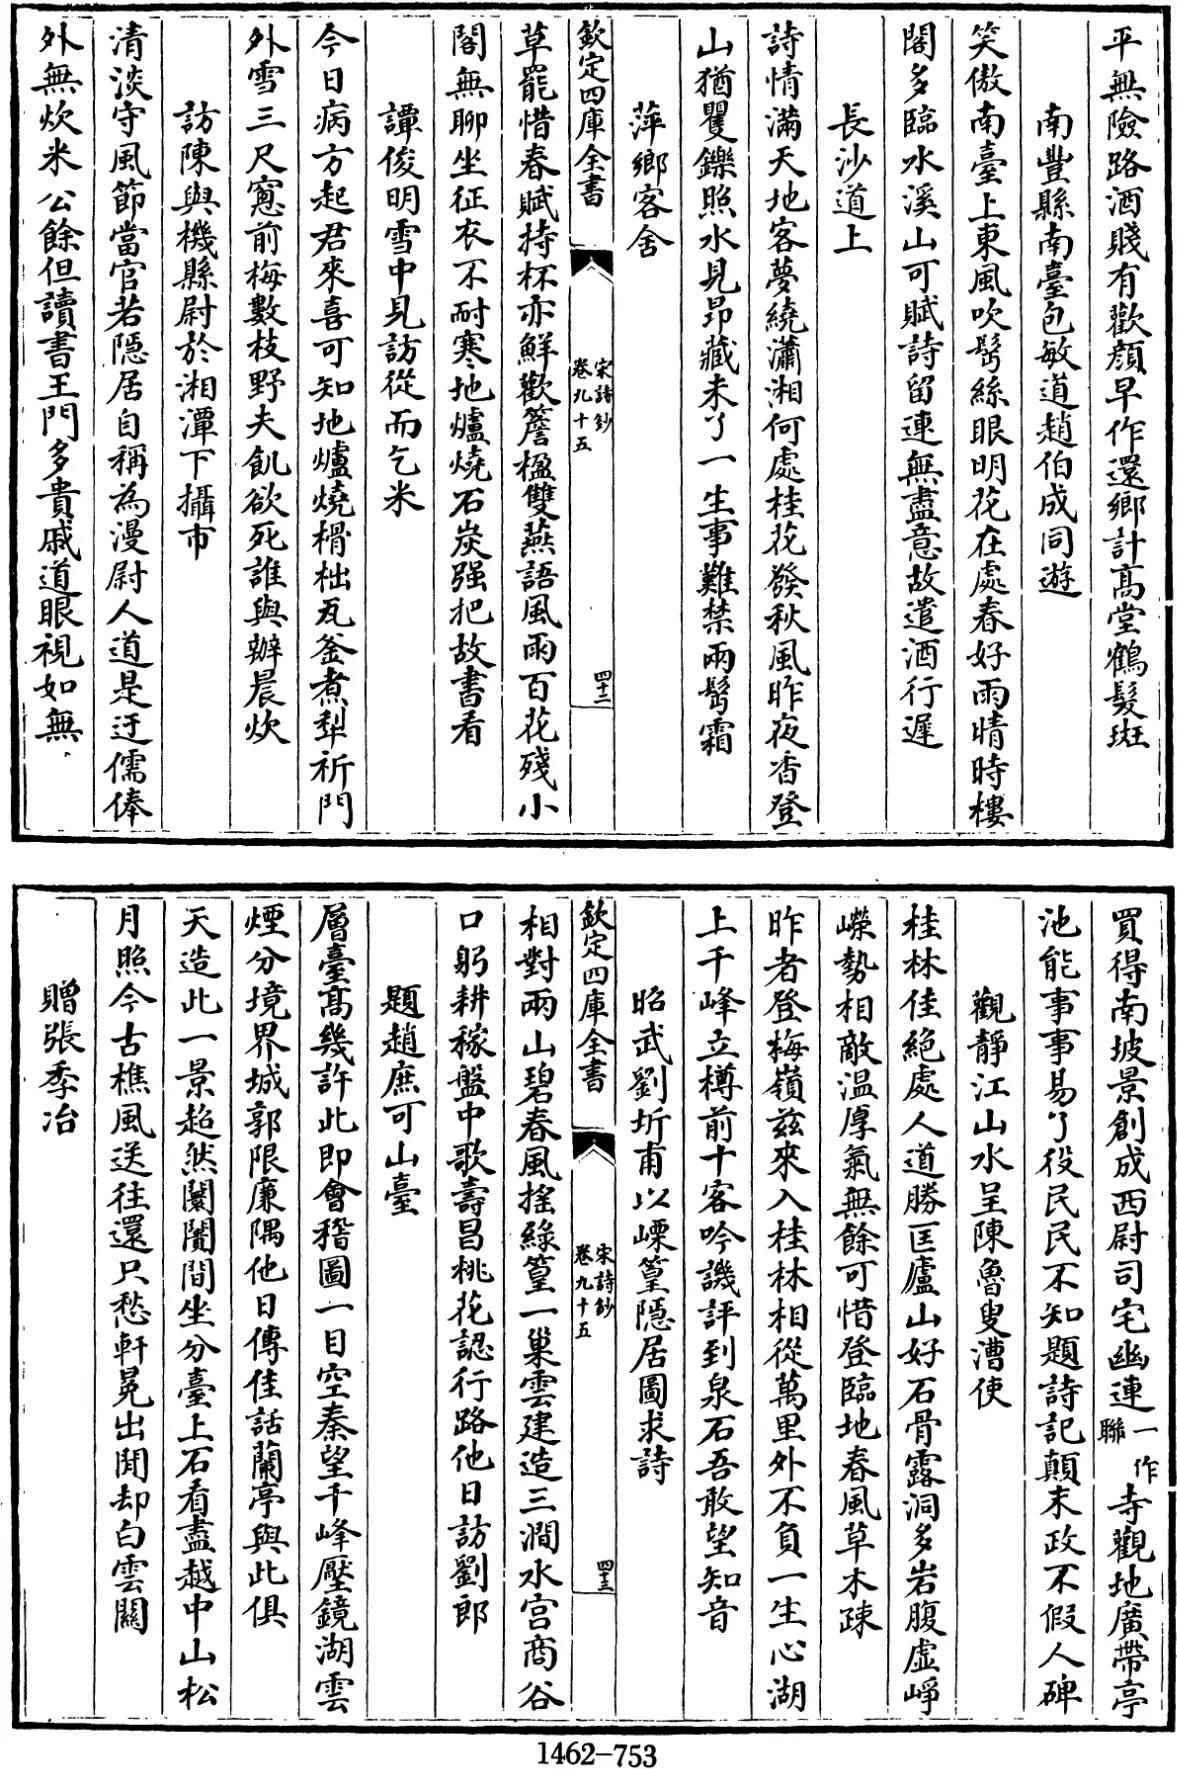 平無險路酒賤有歡顔早作還鄉計髙堂鶴髮斑
南豐縣南臺包敏道趙伯成同遊
笑傲南臺上東風吹鬢絲眼明花在處春好雨晴時樓
閣多臨水溪山可賦詩留連無盡意故遣酒行遲
長沙道上
詩情滿天地客夢繞瀟湘何處桂花發秋風昨夜香登
山猶矍鑠照水見昂藏未了一生事難禁兩鬢霜
萍鄉客舍
欽定四庫全書
宋詩鈔
卷九十五
四十二
草罷惜春賦持杯亦鮮歡簷楹雙燕語風雨百花殘小
閣無聊坐征衣不耐寒地爐燒石炭强把故書看
譚俊明雪中見訪從而乞米
今日病方起君來喜可知地爐燒榾柮瓦釜煮犁祈門
外雪三尺窻前梅數枝野夫飢欲死誰與辦晨炊
訪陳與機縣尉於湘潭下攝市
清淡守風節當官若隠居自稱為漫尉人道是迂儒俸
外無炊米公餘但讀書王門多貴戚道眼視如無
買得南坡景創成西尉司宅幽連一作聯寺觀地廣帶亭
池能事事易了役民民不知題詩記顛末政不假人碑
觀靜江山水呈陳魯叟漕使
桂林佳絶處人道勝匡廬山好石骨露洞多岩腹虛崢
嶸勢相敵温厚氣無餘可惜登臨地春風草木疎
昨者登梅嶺兹來入桂林相從萬里外不負一生心湖
上千峰立樽前十客吟譏評到泉石吾敢望知音
昭武劉圻甫以㟳篁隠居圖求詩
欽定四庫全書
宋詩鈔
卷九十五
四十三
相對兩山碧春風搖綠篁一巢雲建造三澗水宫商谷
口躬耕稼盤中歌壽昌桃花認行路他日訪劉郎
題趙庶可山臺
層臺髙幾許此即會稽圖一目空秦望千峰壓鏡湖雲
煙分境界城郭限廉隅他日傳佳話蘭亭與此俱
天造此一景超然闤闠間坐分臺上石看盡越中山松
月照今古樵風送往還只愁軒冕出閒却白雲關
贈張季冶
1462-753